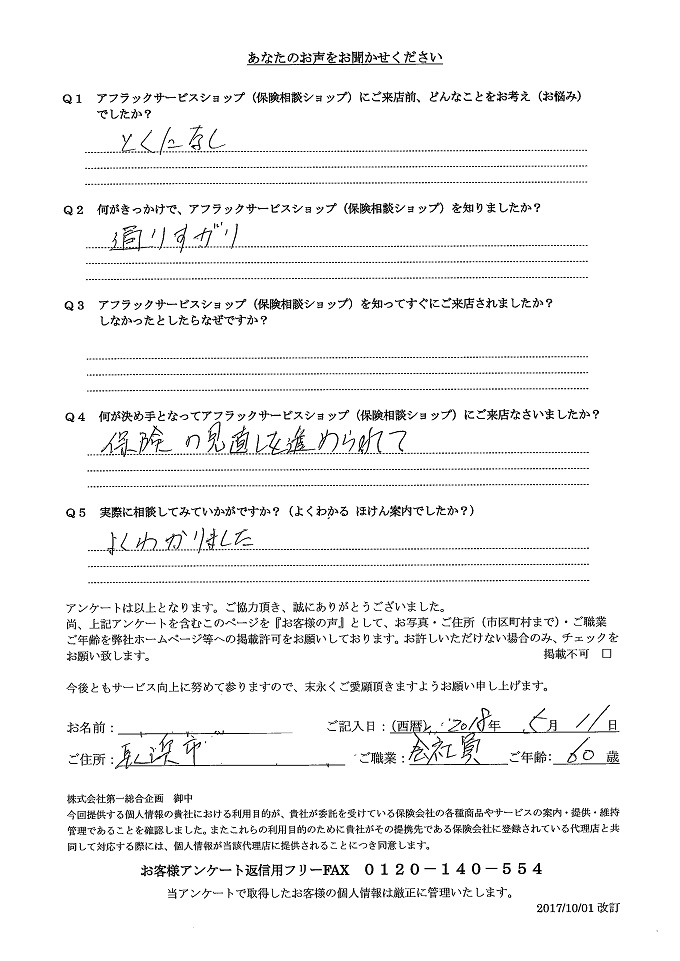 あなたのお声をお聞かせください
Q1 アフラックサービスショップ(保険相談ショップ)にご来店前、どんなことをお考え(お悩み)
でしたか?
とくになし
Q2 何がきっかけで、アフラックサービスショップ(保険相談ショップ)を知りましたか?
通りすがり
Q3 アフラックサービスショップ(保険相談ショップ)を知ってすぐにご来店されましたか?
しなかったとしたらなぜですか?
Q4 何が決め手となってアフラックサービスショップ(保険相談ショップ)にご来店なさいましたか?
保険の見直しを進められて
Q5 実際に相談してみていかがですか?(よくわかる ほけん案内でしたか?)
よくわかりました
アンケートは以上となります。ご協力頂き、誠にありがとうございました。
尚、上記アンケートを含むこのページを『お客様の声』として、お写真・ご住所(市区町村まで)・ご職業
ご年齢を弊社ホームページ等への掲載許可をお願いしております。お許しいただけない場合のみ、チェックを
お願い致します。 掲載不可 □
今後ともサービス向上に努めて参りますので、末永くご愛顧頂きますようお願い申し上げます。
お名前: ご記入日:(西暦) 2018年 5月 11日
ご住所: 市 ご職業:会社員 ご年齢:60歳
株式会社第一総合企画 御中
今回提供する個人情報の貴社における利用目的が、貴社が委託を受けている保険会社の各種商品やサービスの案内・提供・維持
管理であることを確認しました。またこれらの利用目的のために貴社がその提携先である保険会社に登録されている代理店と共
同して対応する際には、個人情報が当該代理店に提供されることにつき同意します。
お客様アンケート返信用フリーFAX 0120-140-554
当アンケートで取得したお客様の個人情報は厳正に管理いたします。
2017/10/01 改訂